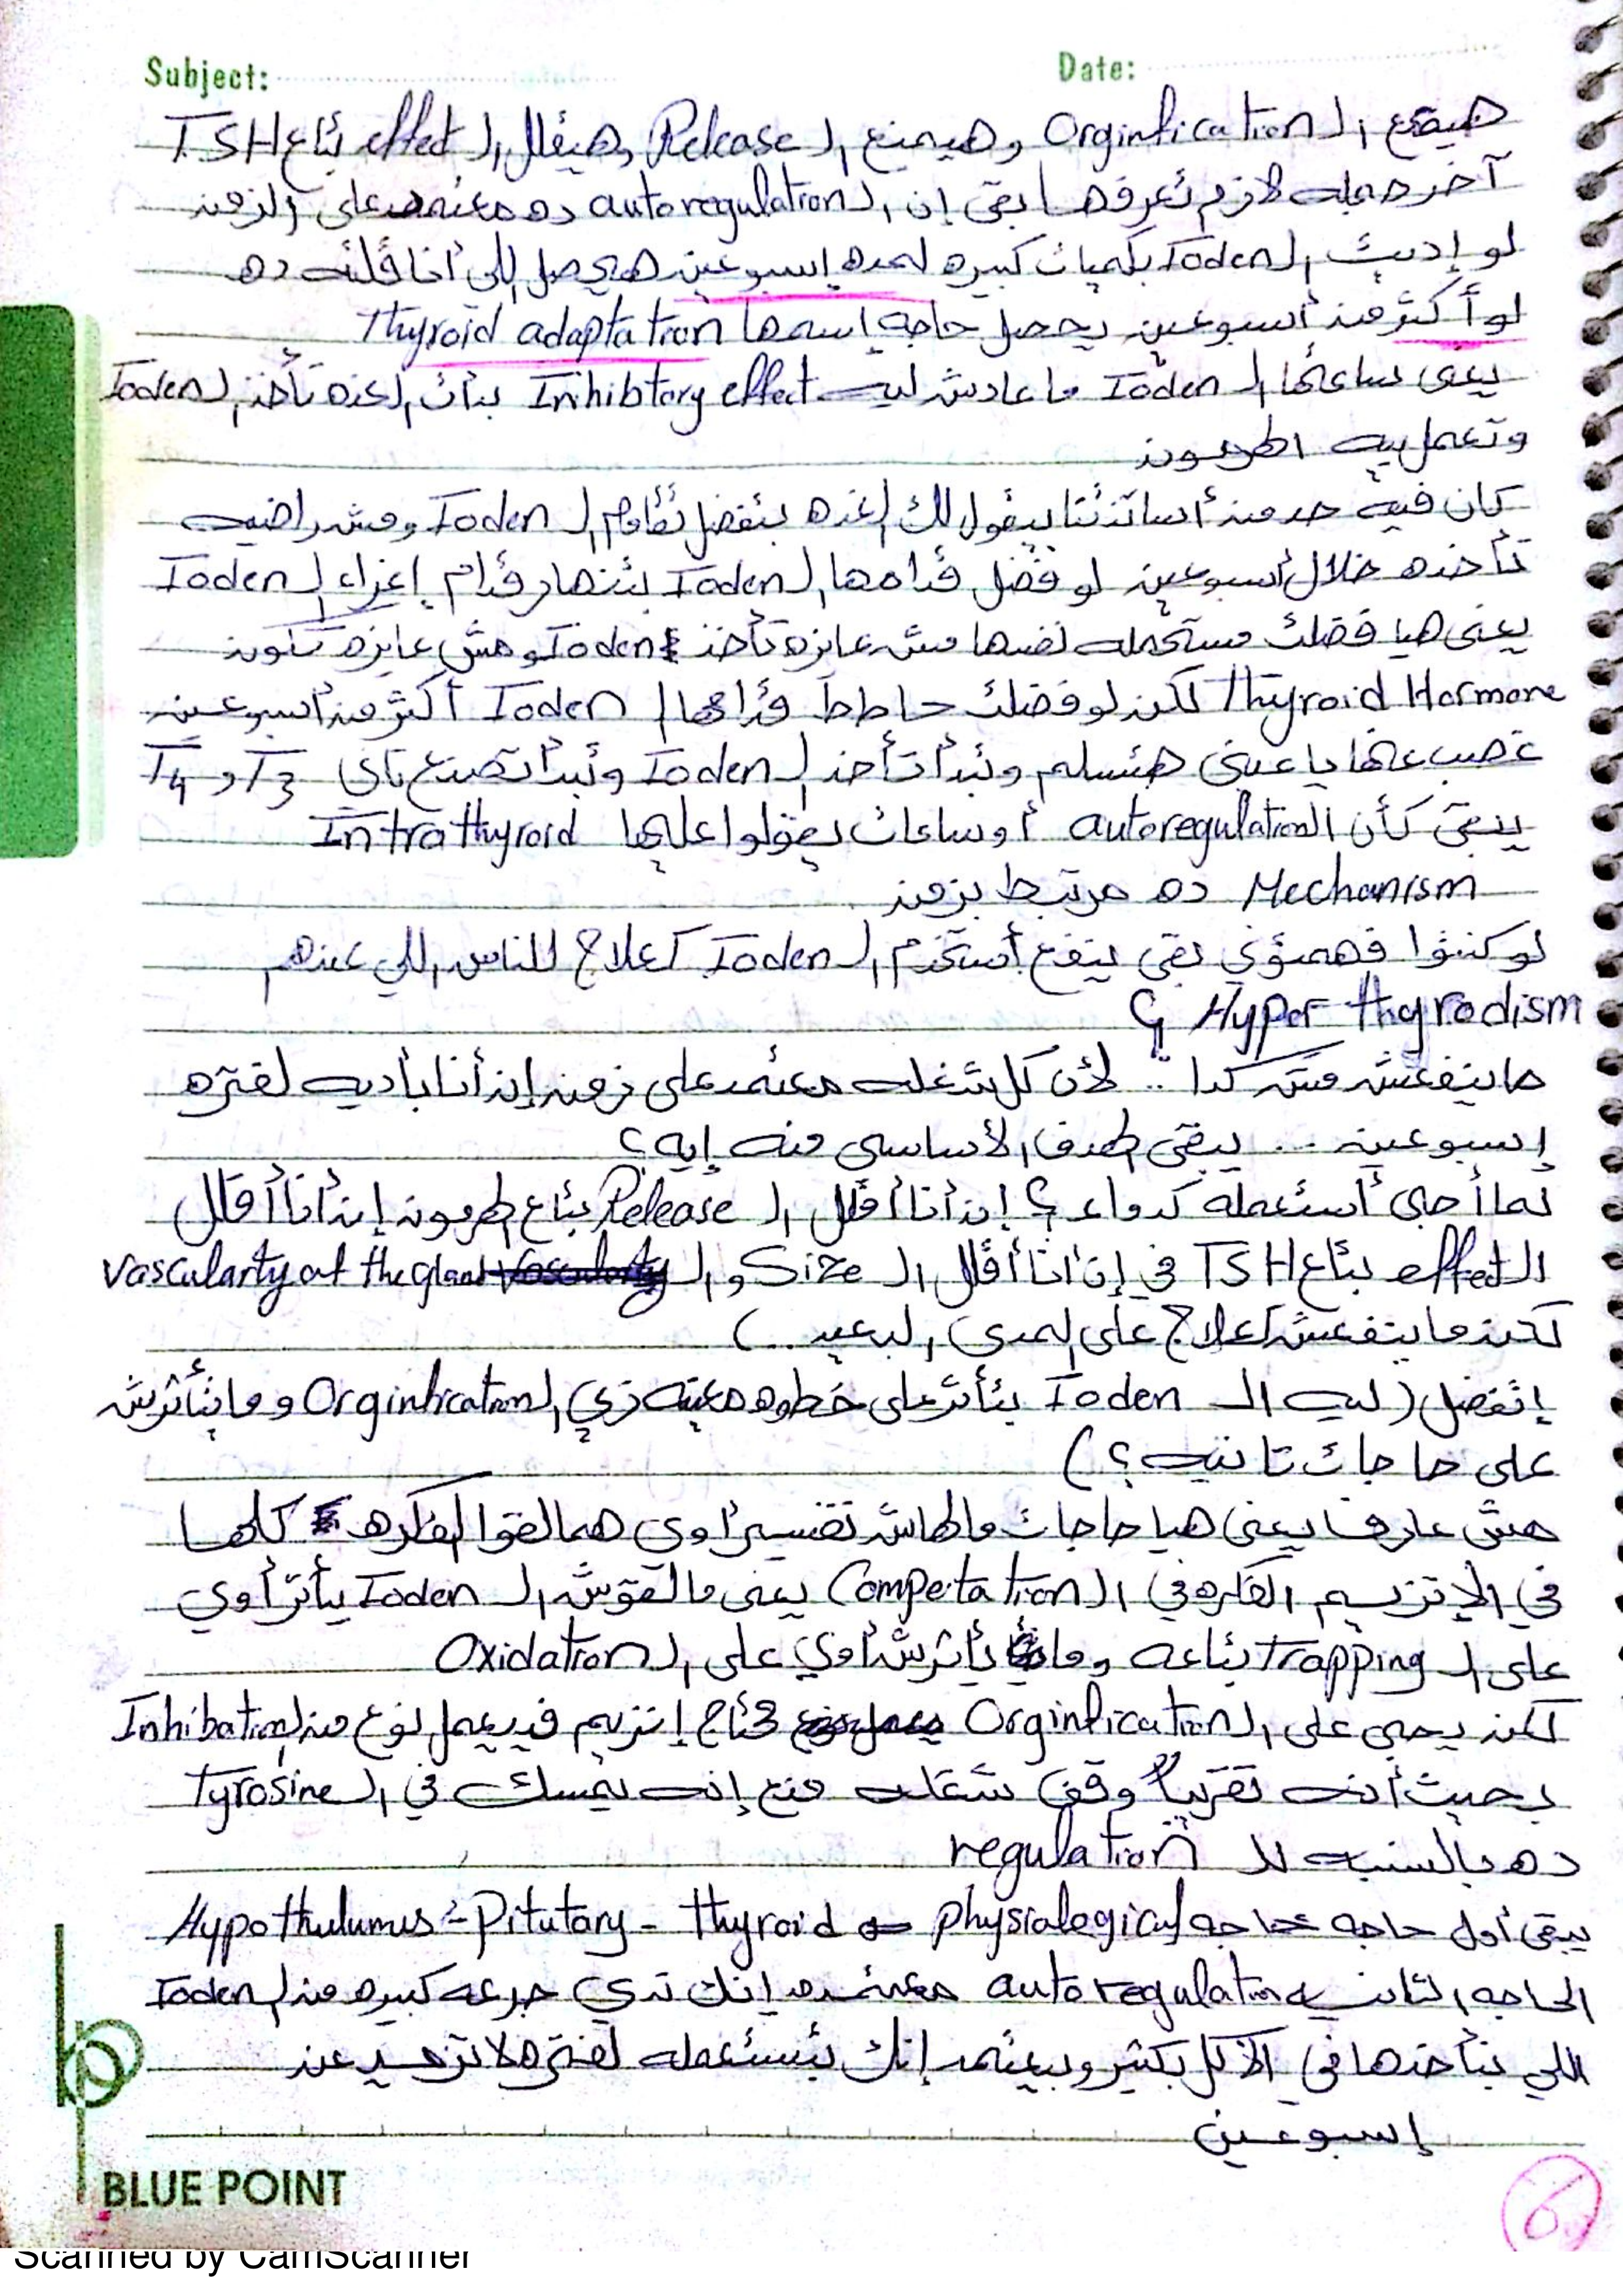 Subject: Date:
هيمنع ال Orginfication وهيمنع ال Release وهيقلل ال effect بتاع TSH
آخر جمله لازم تعرفها بقى إن ال autoregulation ده معتمد على الزمن
لو إديت ال Ioden بكميات كبيره لمده إسبوعين هيحصل اللي أنا قلته ده
لو أكثر من أسبوعين يحصل حاجه إسمها Thyroid adaptation
يعنى ساعتها ال Ioden ما عادش ليه Inhibtory effect بدأت الغده تأخذ ال Ioden
وتعمل بيه الهرمون
كان فيه حد من أساتذتنا بيقول لك الغده بتفضل تقاوم ال Ioden ومش راضيه
تأخده خلال أسبوعين لو فضل قدامها ال Ioden بتنهار قدام إغراء ال Ioden
يعنى هيا فضلت مستحمله نفسها مش عايزه تأخذ Ioden ومش عايزه تكون
Thyroid Hormone لكن لو فضلت حاطط قدامها ال Ioden أكثر من أسبوعين
غصب عنها يا عينى هتسلم وتبدأ تأخذ ال Ioden وتبدأ تصنع تاي T3 و T4
يبقى كأن ال autoregulation أو ساعات يقولوا عليها Intrathyroid
Mechanism ده مرتبط بزمن
لو كنتوا فهمتوني بقى ينفع أستخدم ال Ioden كعلاج للناس اللي عندهم
Hyper thyrodism ؟
ما ينفعش مش كدا .. لأن كل شغله معتمد على زمن إن أنا بأديه لفتره
إسبوعين ... يبقى الهدف الأساسى منه إيه ؟
لما أجى أستعمله كدواء ؟ إن أنا أقلل ال Release بتاع الهرمون إن أنا أقلل
ال effect بتاع TSH في إن أنا أقلل ال Size و ال vascularty of the gland
لكن ما ينفعش كعلاج على المدى البعيد ... )
إتفضل ( ليه ال Ioden بتأثر على خطوه معينه زي ال Orginfication و ما بتأثرش
على حاجات تانيه ؟ )
مش عارف يعنى هيا حاجات مالهاش تفسير أوي هما لقوا الفكره كلها
في الإنزيم الفكره في ال Compeitation يعنى مالقوش ال Ioden يأثر أوي
على ال Trapping بتاعه وما يأثرش أوي على ال Oxidation
لكن يجى على ال Orginfication محتاج إنزيم فيعمل نوع من ال Inhibation
بحيث أنه تقريباً وقف شغله منع إنه يمسك في ال Tyrosine
ده بالنسبه لل regulation
يبقى أول حاجه حاجه physiological Hypothulumus - Pitutary - Thyroid
الحاجه التانيه autoregulation معتمده إنك تدي جرعه كبيره من ال Ioden
اللي بتأخدها في الأكل بكتير وبيعتمد إنك بتستعمله لفتره لا تزيد عن
إسبوعين
6
BLUE POINT
Scanned by CamScanner